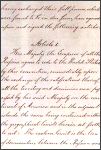 having exchanged their full powers, which
were found to be in due form, have agreed
upon and signed the following articles:
Article I.
His Majesty the Emperor of all the
Russias agrees to cede to the United States,
by this convention, immediately upon
the exchange of the ratifications thereof,
all the territory and dominion now
possessed by his said Majesty on the continent
of America and in the adjacent
islands, the same being contained within
the geographical limits herein set
forth, to wit: The eastern limit is the line
of demarcation between the Russian and